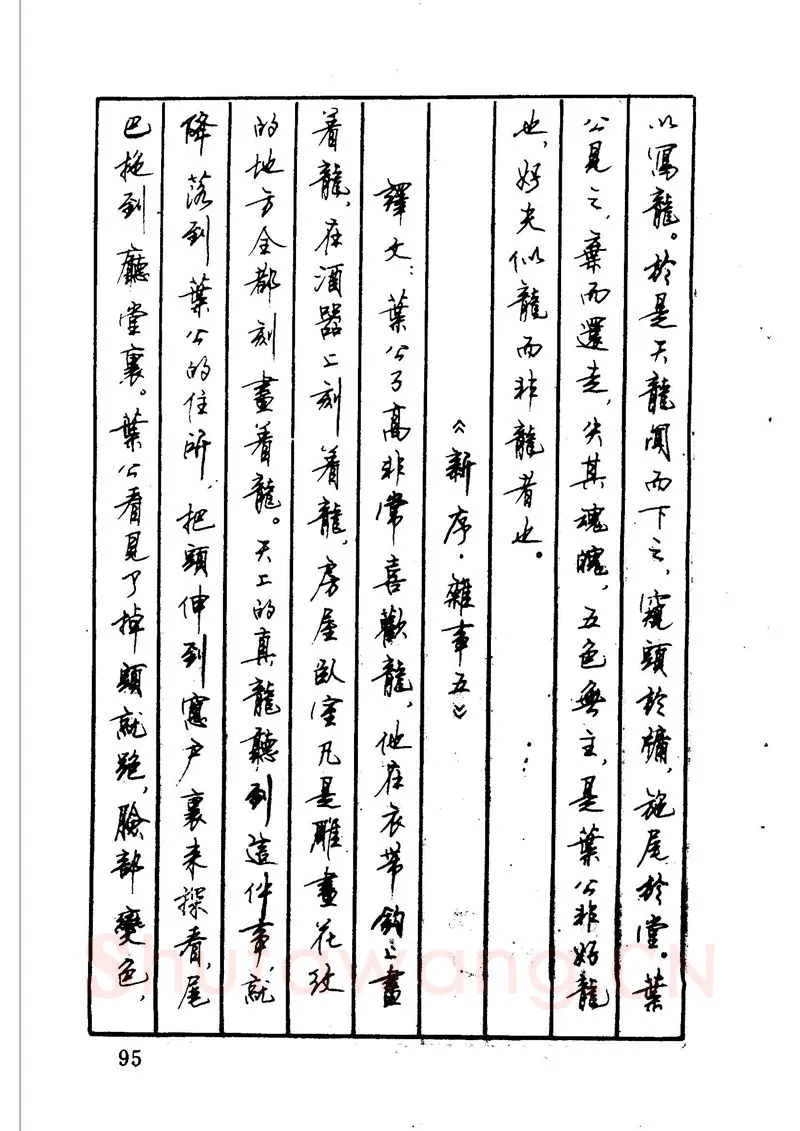 以寫龍。於是天龍聞而下之，窺頭於牖，施尾於堂。葉
公見之，棄而還走，失其魂魄，五色無主，是葉公非好龍
也，好夫似龍而非龍者也。
《新序·雜事五》
譯文：葉公子高非常喜歡龍，他在衣帶鉤上畫
着龍，在酒器上刻着龍，房屋臥室凡是雕畫花紋
的地方全都刻畫着龍。天上的真龍聽到這件事，就
降落到葉公的住所，把頭伸到窻户裏來探看，尾
巴拖到廳堂裏。葉公看見了掉頭就跑，臉部變色，
95
Shufawang.CN